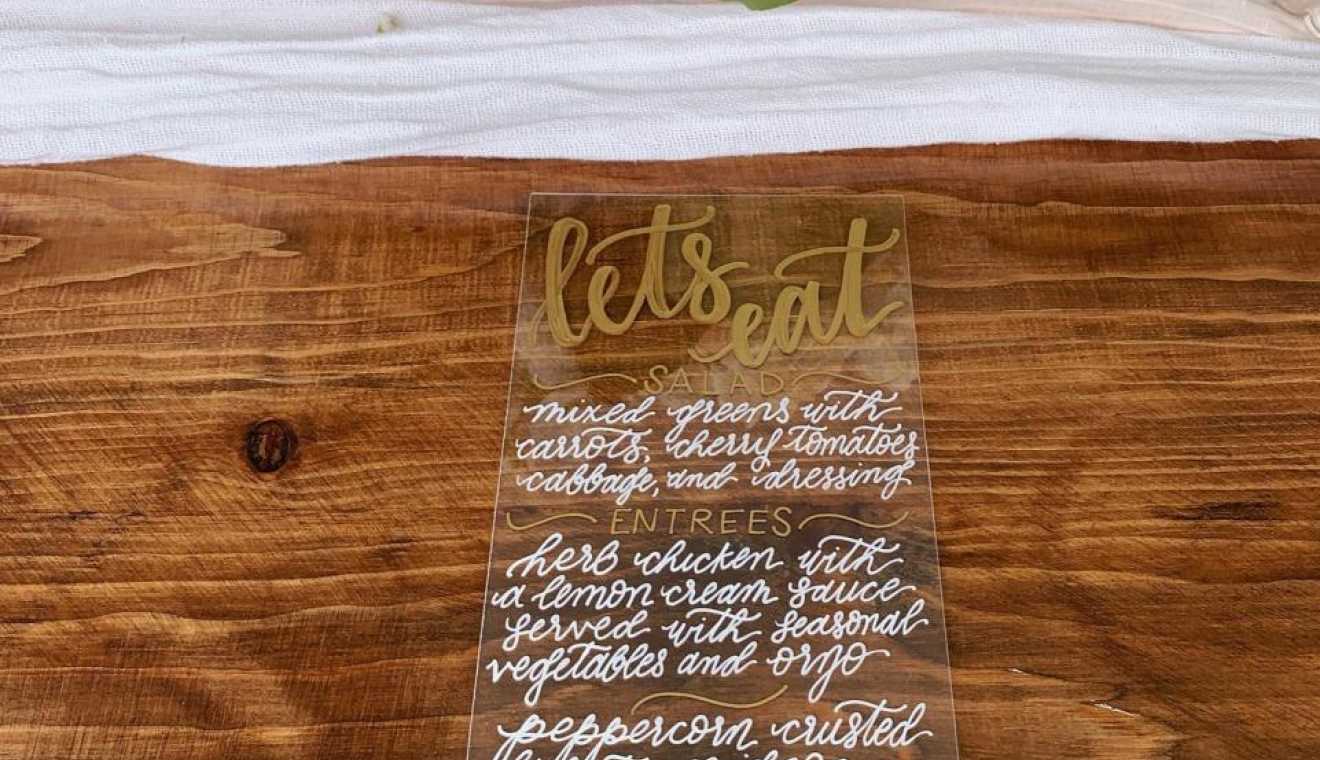 lets eat
SALAD
mixed greens with
carrots, cherry tomatoes
cabbage, and dressing
ENTREES
herb chicken with
a lemon cream sauce
served with seasonal
vegetables and orzo
peppercorn crusted